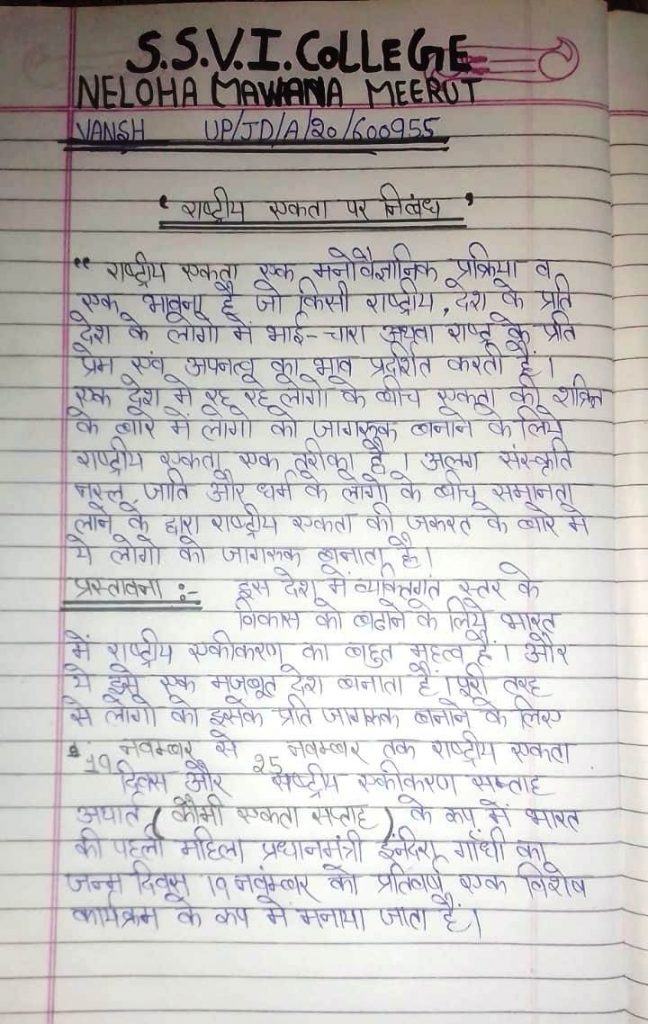 S.S.V.I. COLLEGE
NELOHA MAWANA MEERUT
VANSH UP/JD/A/20/600955
' राष्ट्रीय एकता पर निबंध '
" राष्ट्रीय एकता एक मनोवैज्ञानिक प्रक्रिया व
एक भावना है जो किसी राष्ट्रीय, देश के प्रति
देश के लोगो में भाई-चारा अथवा राष्ट्र के प्रति
प्रेम एवं अपनत्व का भाव प्रदर्शित करती है।
एक देश में रह रहे लोगो के बीच एकता की शक्ति
के बारे में लोगो को जागरूक बनाने के लिये
राष्ट्रीय एकता एक तरीका है। अलग संस्कृति
नस्ल, जाति और धर्म के लोगो के बीच समानता
लाने के द्वारा राष्ट्रीय एकता की जरूरत के बारे में
ये लोगो को जागरूक बनाता है।
प्रस्तावना :- इस देश में व्यक्तिगत स्तर के
विकास को बढाने के लिये भारत
में राष्ट्रीय एकीकरण का बहुत महत्व है। और
ये इसे एक मजबूत देश बनाता है। पूरी तरह
से लोगो को इसके प्रति जागरूक बनाने के लिए
19 नवम्बर से 25 नवम्बर तक राष्ट्रीय एकता
दिवस और राष्ट्रीय एकीकरण सप्ताह
अर्थात (कौमी एकता सप्ताह) के रूप में भारत
की पहली महिला प्रधानमंत्री इंन्दिरा गाँधी का
जन्म दिवस 19 नवंम्बर को प्रतिवर्ष एक विशेष
कार्यक्रम के रूप में मनाया जाता है।